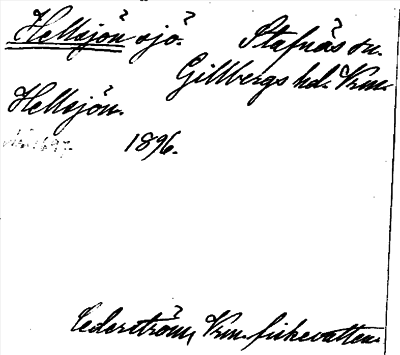 Hellsjön sjö. Stafnäs sn.
Gillbergs hd. Vrm.
Hellsjön.
1896.
Cederström, Vrm. fiskevatten.